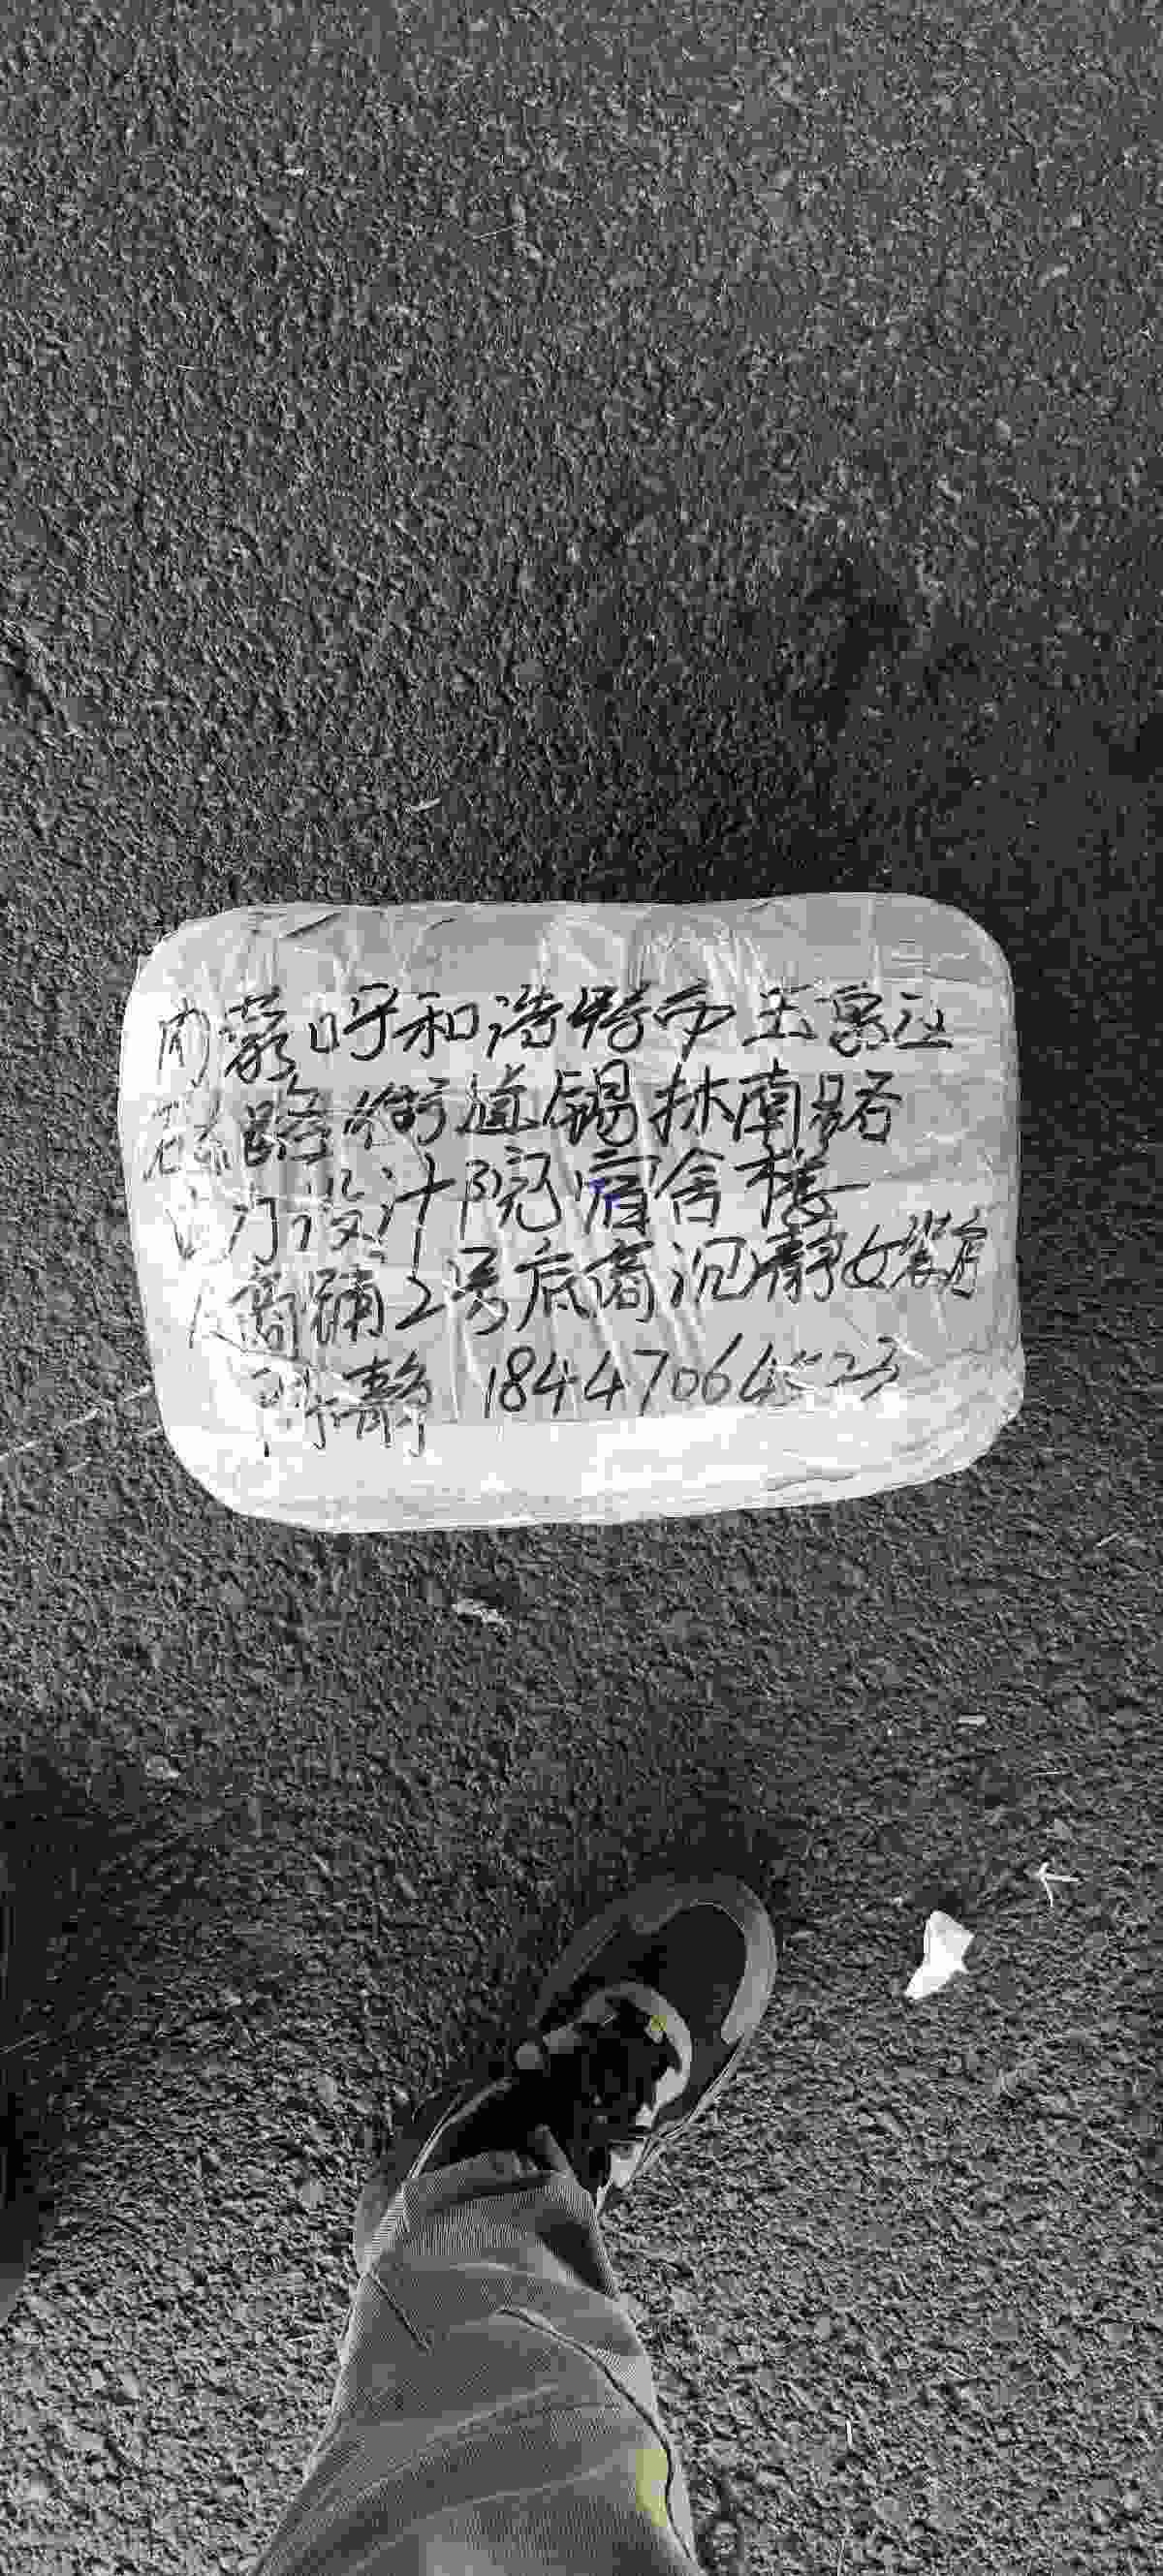 内蒙呼和浩特市玉泉区
石东路街道锡林南路
设计院宿舍楼
商铺2号底商沉静女装店
许静 18447064523